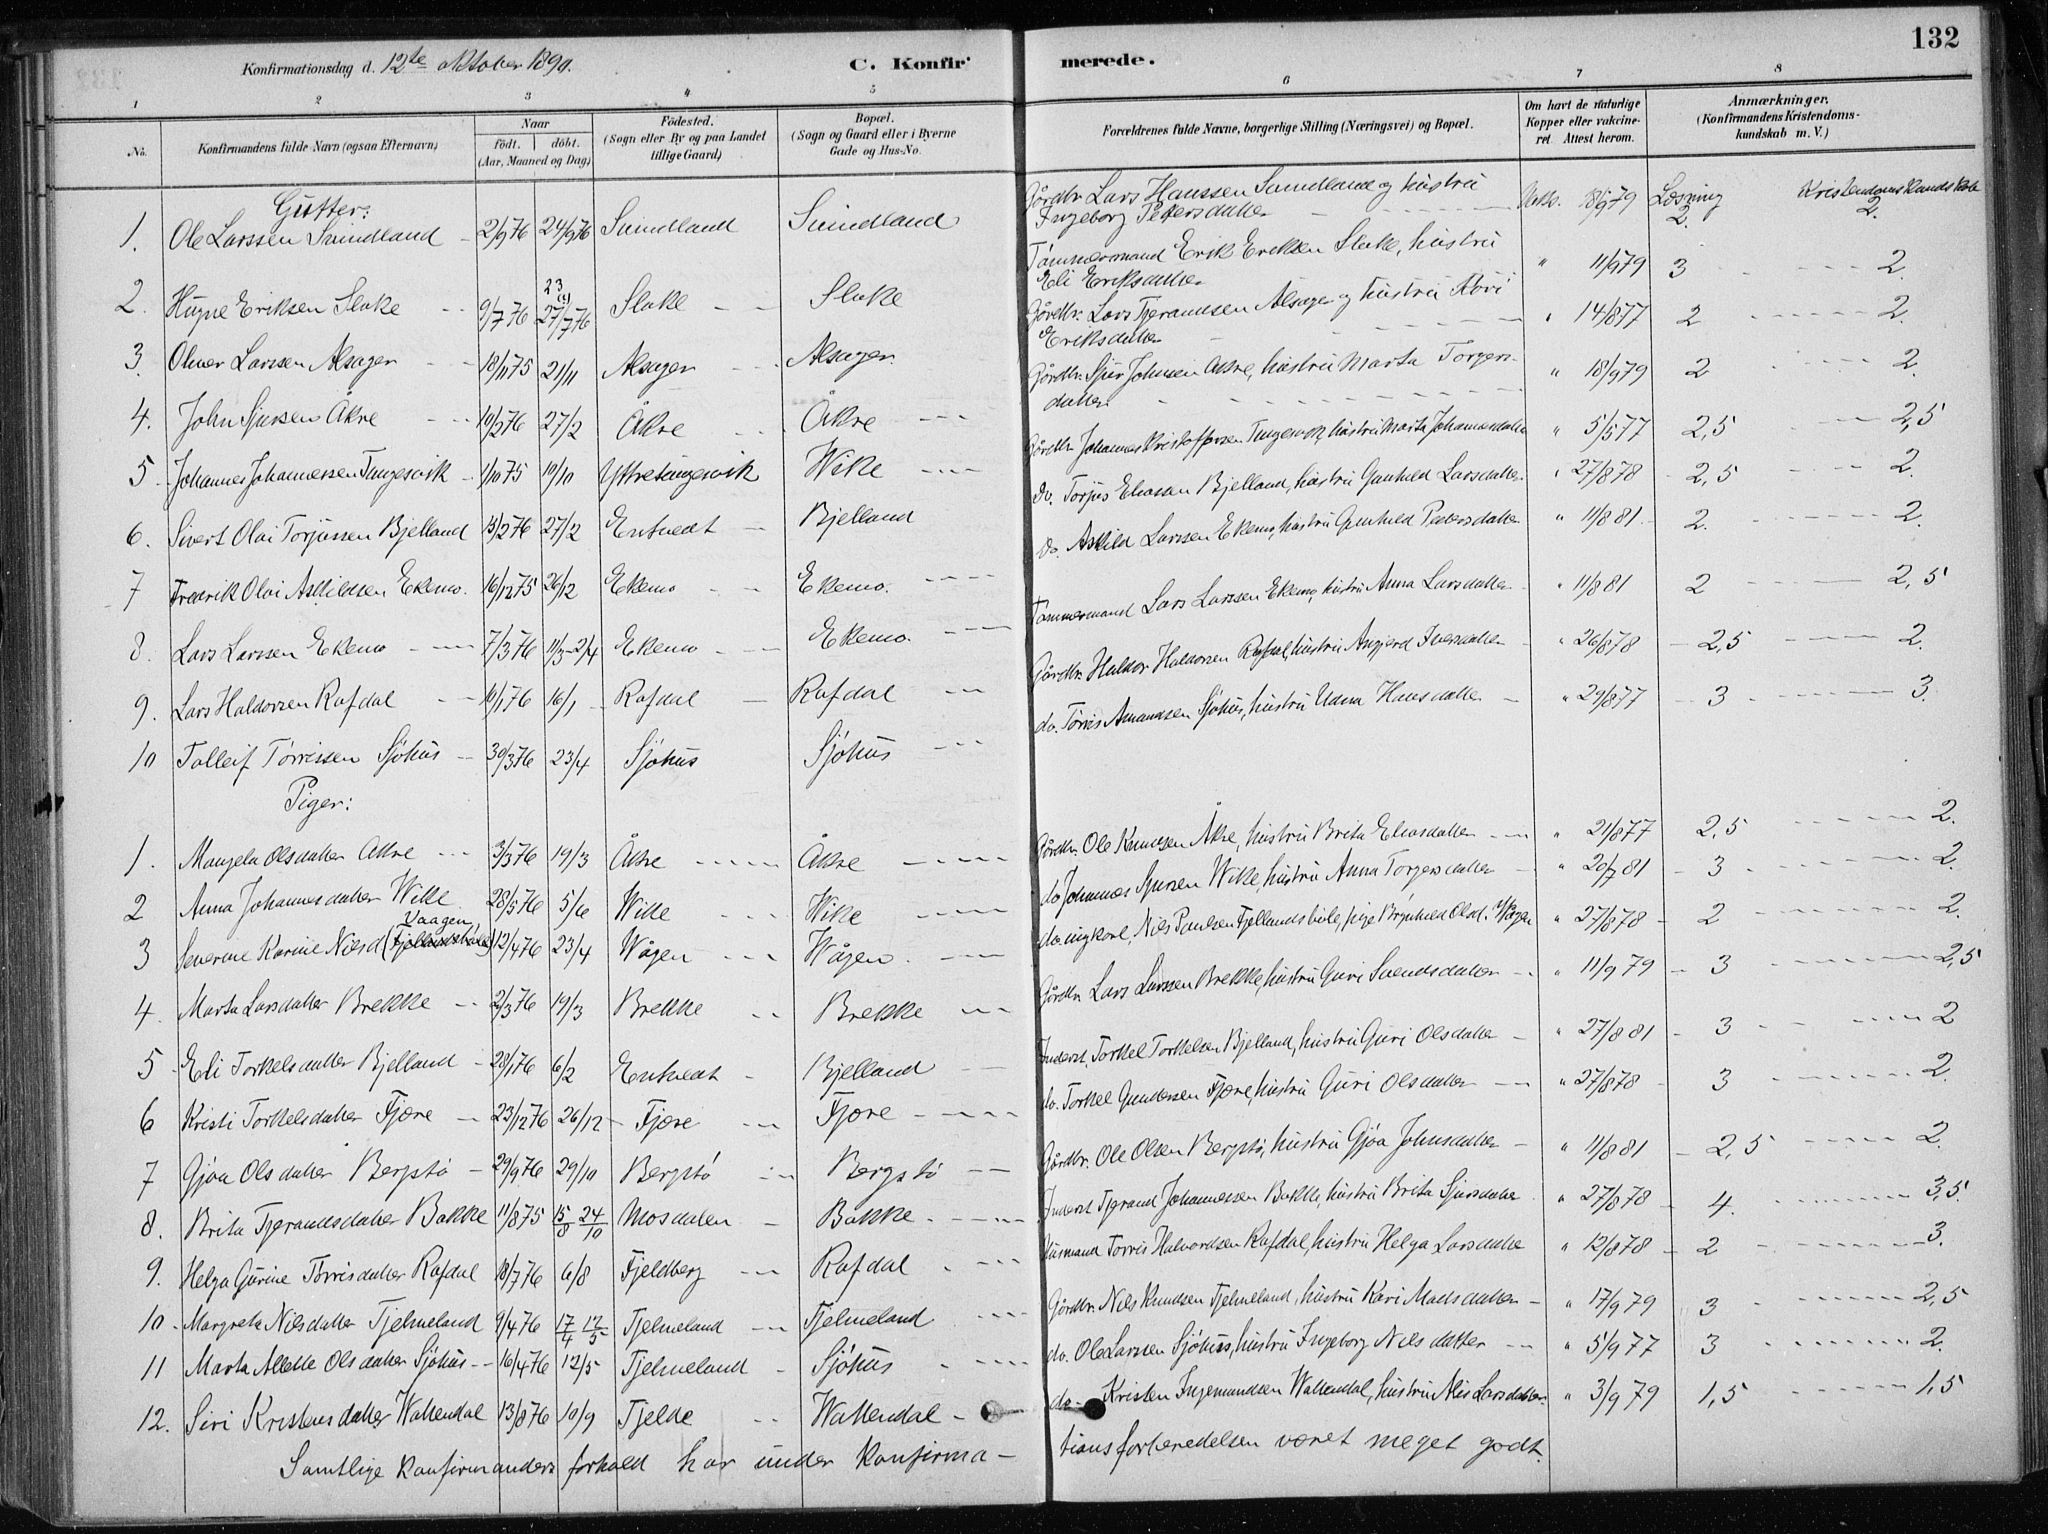 132
Konfirmationsdag d. 12te oktober 1890. C. Konfir- merede.
1 2 3 4 5 6 7 8
No. Konfirmandens fulde Navn (ogsaa Efternavn) Naar födt. döbt. (Aar, Maaned og Dag) Födested. (Sogn eller By og paa Landet tillige Gaard) Bopæl. (Sogn og Gaard eller i Byerne Gade og Hus-No. Forældrenes fulde Navne, borgerlige Stilling (Næringsvei) og Bopæl. Om havt de naturlige Kopper eller vakcineret. Attest herom. Anmærkninger. (Konfirmandens Kristendomskundskab m. V.)
Gutter: Læsning Kristendomskundskab
1. Ole Larssen Svindland 2/9 76 24/9 76 Svindland Svindland Gårdbr. Lars Hanssen Svindland og hustru Ingeborg Pettersdatter Vakc. 18/9 79 2. 2.
2. Eriksen Slake 9/7 76 23 27/7 76 Slake Slake Tömmermand Erik Eriksen Slake, hustru Eli Eriksdatter " 11/9 79 3 2.
3. Olmer Larssen Alsager 18/11 75 21/11 Alsager Alsager Gårdbr. Lars Tjerandsen Alsager og hustru Eriksdatter " 14/8 77 2 2.
4. John Sjursen Åkre 10/2 76 27/2 Åkre Åkre Gårdbr. Sjur Johnsen Akre, hustru Marta Torgersdatter " 18/9 79 2 2.
5 Johannes Johannessen Tungesvik 1/10 75 10/10 Ytretungesvik Wike Gårdbr. Johannes Kristoffersen Tungesvik, hustru Marta Johannesdatter " 5/5 77 2,5 2,5
6. Sivert Olai Torjussen Bjelland 13/2 76 27/2 Entvedt Bjelland do. Torjus Eliasen Bjelland, hustru Gunhild Larsdatter " 27/8 78 2,5 2.
7 Fredrik Olai Askildsen Ekemo 16/12 75 26/12 Ekemo Ekemo. do. Askild Larssen Ekemo, hustru Gunhild Pedersdatter " 11/8 81 2. 2.
8. Lars Larssen Ekemo 7/3 76 11/3 - 2/4 Ekemo Ekemo. Tömmermand Lars Larssen Ekemo, hustru Anna Larsdatter " 11/8 81 2 2,5
9. Lars Haldorsen Rafdal 10/1 76 16/1 Rafdal Rafdal Gårdbr. Haldor Haldorsen Rafdal, hustru Angjerd Iversdatter " 26/8 78 2,5 2.
10 Tolleif Törrissen Sjöhus 30/3 76 23/4 Sjöhus Sjöhus do. Törris Amundsen Sjöhus, hustru Udna Hansdatter " 29/8 77 3 3.
Piger:
1. Mangela Olsdatter Akre 3/3 76 19/3 Åkre Åkre Gårdbr. Ole Knudsen Åkre, hustru Brita Eliasdatter " 21/8 77 2,5 2.
2 Anna Johannesdatter Wike 28/5 76 5/6 Wike Wike do Johannes Sjursen Wike, hustru Anna Torgersdatter " 20/7 81 3 2.
3 Severine Karine Nilsd. Vaagen 12/4 76 23/4 Wågen Wågen. do. ungkarl, Nils Paulsen Fjellandsbøle, pige Brynhild Olsd. " 27/8 78 2 2.
4. Marta Larsdatter Brekke 2/3 76 19/3 Brekke Brekke Gårdbr. Lars Larssen Brekke, hustru Guri Svendsdatter " 11/9 79 3 2,5
5 Eli Torkelsdatter Bjelland 28/1 76 6/2 Entvedt Bjelland Inderst, Torkel Torkelsen Bjelland, hustru Guri Olsdatter " 27/8 81 3 2
6 Kristi Torkelsdatter Fjære 23/12 76 26/12 Fjære Fjære do. Torkel Gundersen Fjære, hustru Guri Olsdatter " 27/8 78 3 2.
7 Gjöa Olsdatter Bergstö 29/9 76 29/10 Bergstö Bergstö Gårdbr. Ole Olsen Bergstö, hustru Gjöa Johnsdatter " 11/8 81 2,5 2.
8. Brita Tjerandsdatter Bakke 11/8 75 15/8 24/10 Mosdalen Bakke. Inderst Tjerand Johannessen Bakke, hustru Brita Sjursdatter " 27/8 78 4. 3,5.
9. Helga Gurine Törrisdatter Rafdal 18/7 76 6/8 Fjeldberg Rafdal Husmand Törris Halvordsen Rafdal, hustru Helga Larsdatter " 12/8 78 2 3.
10 Margreta Nilsdatter Fjelmeland 9/4 76 17/4 12/5 Fjelmeland Fjelmeland Gårdbr. Nils Knudsen Fjelmeland, hustru Kari Madsdatter " 17/9 79 3 2,5
11 Marta Olsdatter Sjöhus 16/4 76 12/5 Fjelmeland Sjöhus do. Ole Larssen Sjöhus, hustru Ingeborg Nilsdatter " 5/9 77 3 2.
12. Siri Kristensdatter Wattendal 13/8 76 10/9 Fjelde Wattendal do Kristen Ingemundsen Wattendal, hustru Larsdatter. " 3/9 79 1,5 1,5
Samtlige konfirmanders forhold har under konfirma- tionsforberedelsen været meget godt.